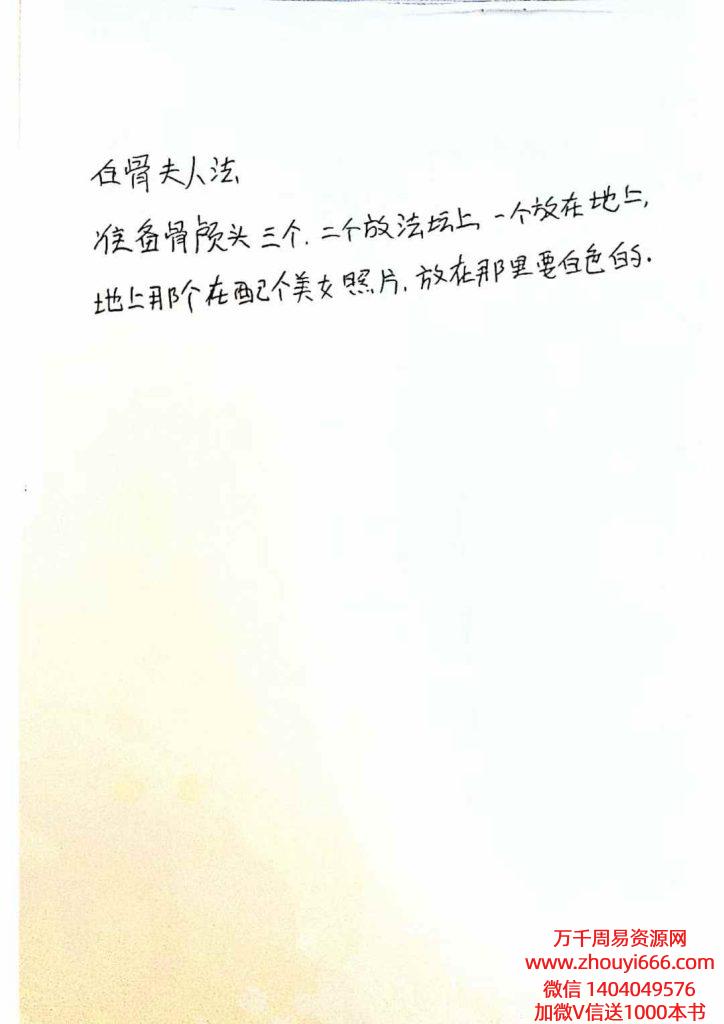 白骨夫人法
准备骨颅头三个.二个放法坛上 一个放在地上,
地上那个在配个美女照片.放在那里要白色的.
万千周易资源网
www.zhouyi666.com
微信 1404049576
加微V信送1000本书